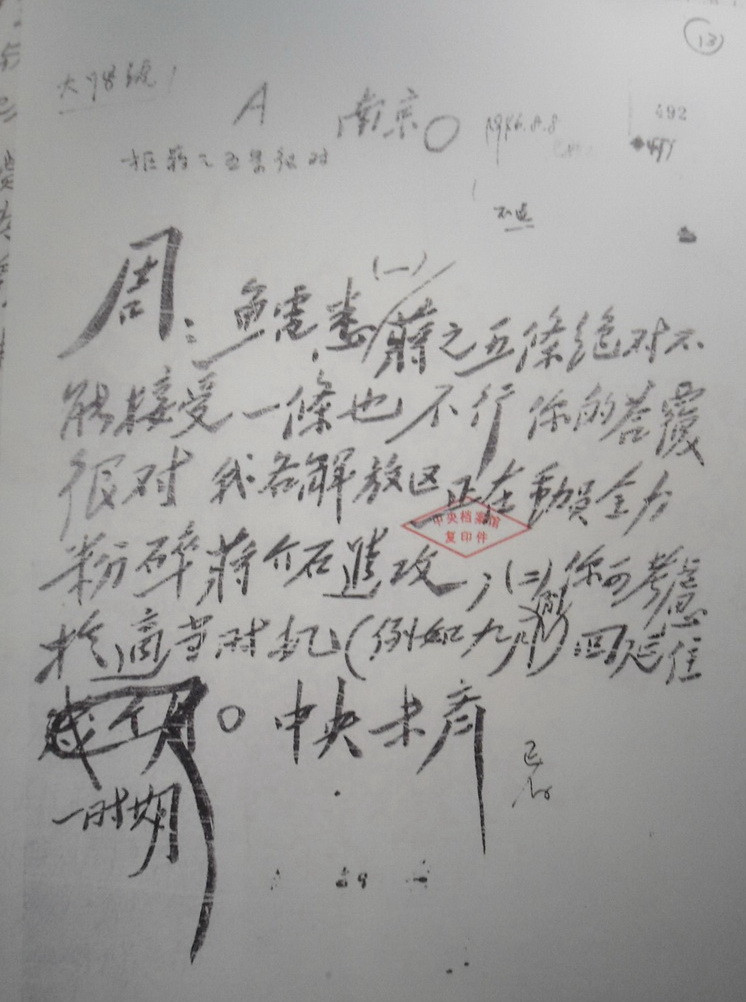 13
A 南京〇 1946.8.8
492
周：魚電悉(一)蔣之五條绝对不
能接受一條也不行你的答覆
很对我各解放区正在動員全力
中央档案馆
复印件
粉碎蔣介石進攻；(二)你可考慮
於適當时机(例如九月前)回延住
一时期〇中央未齊